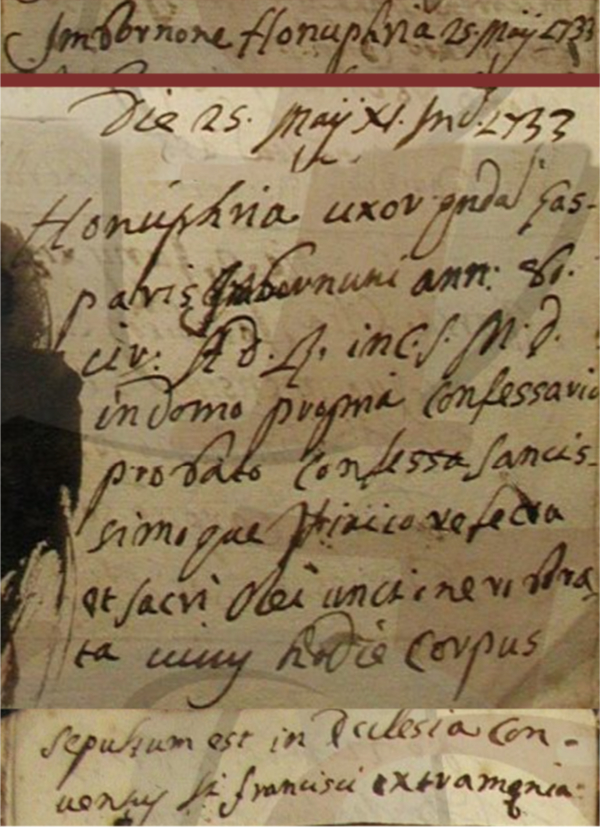 Imbornone Honuphria 25. Maij 1733
Die 25. Maij XI. Ind. 1733
Honuphria uxor qnda Gas-
paris Imbornuni ann: 80.
civ: A D. R. in C. S. M. d.
in domo propria Confessario
probato Confessa Sancis-
simoque Viatico refecta
et Sacri Olei unctine robora
ta hodie Corpus
sepultum est in Ecclesia Con-
uentus Sti francisci extra menia